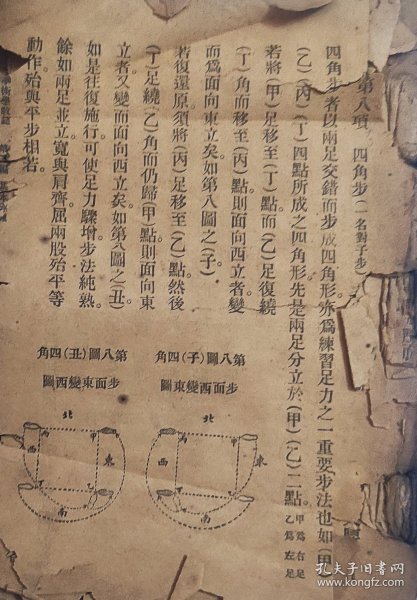 第八項　四角步(一名對子步)
四角步者以兩足交錯而步成四角形亦爲練習足力之一重要步法也如(甲)
(乙)(丙)(丁)四點所成之四角形先是兩足分立於(甲)(乙)二點。甲爲右足
乙爲左足
若將(甲)足移至(丁)點而(乙)足復繞
(丁)角而移至(丙)點則面向西立者變
而爲面向東立矣如第八圖之(子)。
若復還原須將(丙)足移至(乙)點然後
(丁)足繞(乙)角而仍歸(甲)點則面向東
立者又變而面向西立矣如第八圖之(丑)
如是往復施行可使足力驟增步法純熟。
餘如兩足並立寬與肩齊屈兩股殆平等
動作殆與平步相若。
第八圖(子)四角
步面西變東圖
北
甲
丙
東
丁
南
第八圖(丑)四角
步面東變西圖
北
甲
丙
東
西
丁
南
孔夫子旧书网
www.kongfz.com